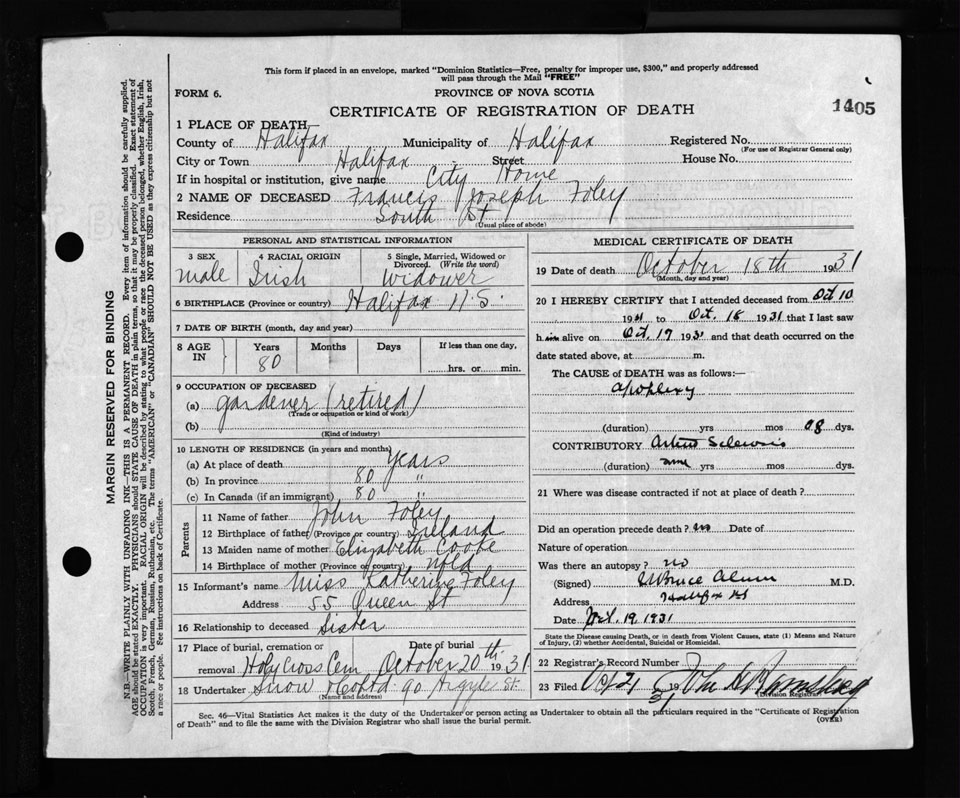 This form if placed in an envelope, marked "Dominion Statistics—Free, penalty for improper use, $300," and properly addressed
will pass through the Mail "FREE"
FORM 6.
PROVINCE OF NOVA SCOTIA
CERTIFICATE OF REGISTRATION OF DEATH
1405
1 PLACE OF DEATH
County of Halifax Municipality of Halifax Registered No.
(For use of Registrar General only)
City or Town Halifax Street House No.
If in hospital or institution, give name City Home
2 NAME OF DECEASED Francis Joseph Foley
Residence South St
(Usual place of abode)
PERSONAL AND STATISTICAL INFORMATION
3 SEX male
4 RACIAL ORIGIN Irish
5 Single, Married, Widowed or Divorced. (Write the word) Widower
6 BIRTHPLACE (Province or country) Halifax N.S.
7 DATE OF BIRTH (month, day and year)
8 AGE IN Years Months Days If less than one day,
80 hrs. or min.
9 OCCUPATION OF DECEASED
(a) gardener (retired)
(Trade or occupation or kind of work)
(b)
(Kind of industry)
10 LENGTH OF RESIDENCE (in years and months)
(a) At place of death years
(b) In province 80 "
(c) In Canada (if an immigrant) 80 "
Parents
11 Name of father John Foley
12 Birthplace of father (Province or country) Ireland
13 Maiden name of mother Elizabeth Cooke
14 Birthplace of mother (Province or country) Nfld
15 Informant's name Miss Katherine Foley
Address 55 Queen St
16 Relationship to deceased Sister
17 Place of burial, cremation or removal Holy Cross Cem Date of burial October 20th 1931
18 Undertaker Snow & Co Ltd 90 Argyle St.
(Name and address)
MEDICAL CERTIFICATE OF DEATH
19 Date of death October 18th 1931
(Month, day and year)
20 I HEREBY CERTIFY that I attended deceased from Oct 10
1931 to Oct. 18 1931 that I last saw
him alive on Oct. 17 1931 and that death occurred on the
date stated above, at m.
The CAUSE of DEATH was as follows:—
Apoplexy
(duration) yrs mos 08 dys.
CONTRIBUTORY
(duration) yrs mos dys.
21 Where was disease contracted if not at place of death?
Did an operation precede death? no Date of
Nature of operation
Was there an autopsy? no
(Signed) M.D.
Address Halifax NS
Date Oct. 19, 1931
State the Disease causing Death, or in death from Violent Causes, state (1) Means and Nature
of Injury, (2) whether Accidental, Suicidal or Homicidal.
22 Registrar's Record Number
23 Filed Oct 21 1931
Division Registrar
Sec. 46—Vital Statistics Act makes it the duty of the Undertaker or person acting as Undertaker to obtain all the particulars required in the "Certificate of Registration
of Death" and to file the same with the Division Registrar who shall issue the burial permit.
(OVER)
MARGIN RESERVED FOR BINDING
N.B.—WRITE PLAINLY WITH UNFADING INK—THIS IS A PERMANENT RECORD. Every item of information should be carefully supplied.
AGE should be stated EXACTLY. PHYSICIANS should STATE CAUSE OF DEATH in plain terms, so that it may be properly classified. Exact statement of
OCCUPATION is very important. RACIAL ORIGIN will be described by stating to what people or race the deceased person belonged, whether English, Irish,
Scotch, French, German, Russian, Ruthenian, etc. The terms "AMERICAN" or "CANADIAN" SHOULD NOT BE USED as they express citizenship but not
a race or people. See instructions on back of Certificate.